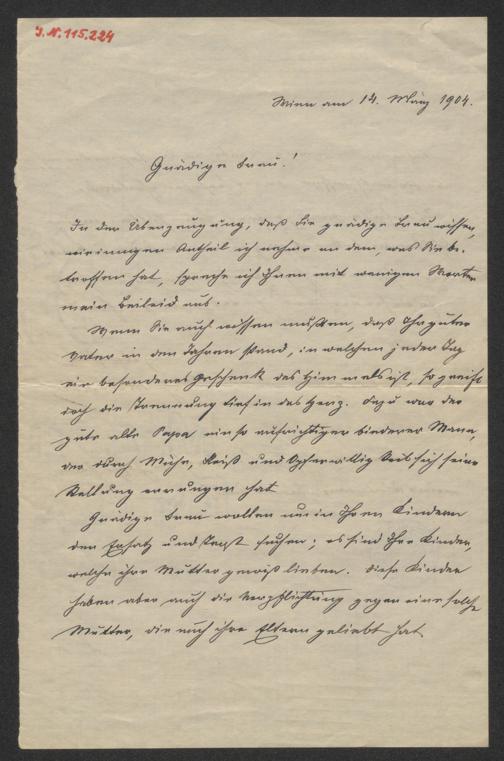 J.N. 115.224
Wien am 14. März 1904.
Gnädige Frau!
In der Überzeugung, daß Sie gnädige Frau wissen,
wie innigen Antheil ich nehme an dem, was Sie be-
troffen hat, spreche ich Ihnen mit wenigen Worten
mein Beileid aus.
Wenn Sie auch wissen mußten, daß Ihr guter
Vater in den Jahren stand, in welchen jeder Tag
ein besonderes Geschenk des Himmels ist, so greift
doch die Trennung tief in das Herz. Dazu war der
gute alte Papa ein so aufrichtiger biederer Mann,
der durch Mühe, Fleiß und Opferwilligkeit sich seine
Stellung errungen hat
Gnädige Frau wollen nun in Ihren Kindern
den Ersatz und Trost suchen; es sind Ihre Kinder,
welche ihre Mutter gewiß lieben. Diese Kinder
haben aber auch die Verpflichtung gegen eine solche
Mutter, die auch ihre Eltern geliebt hat